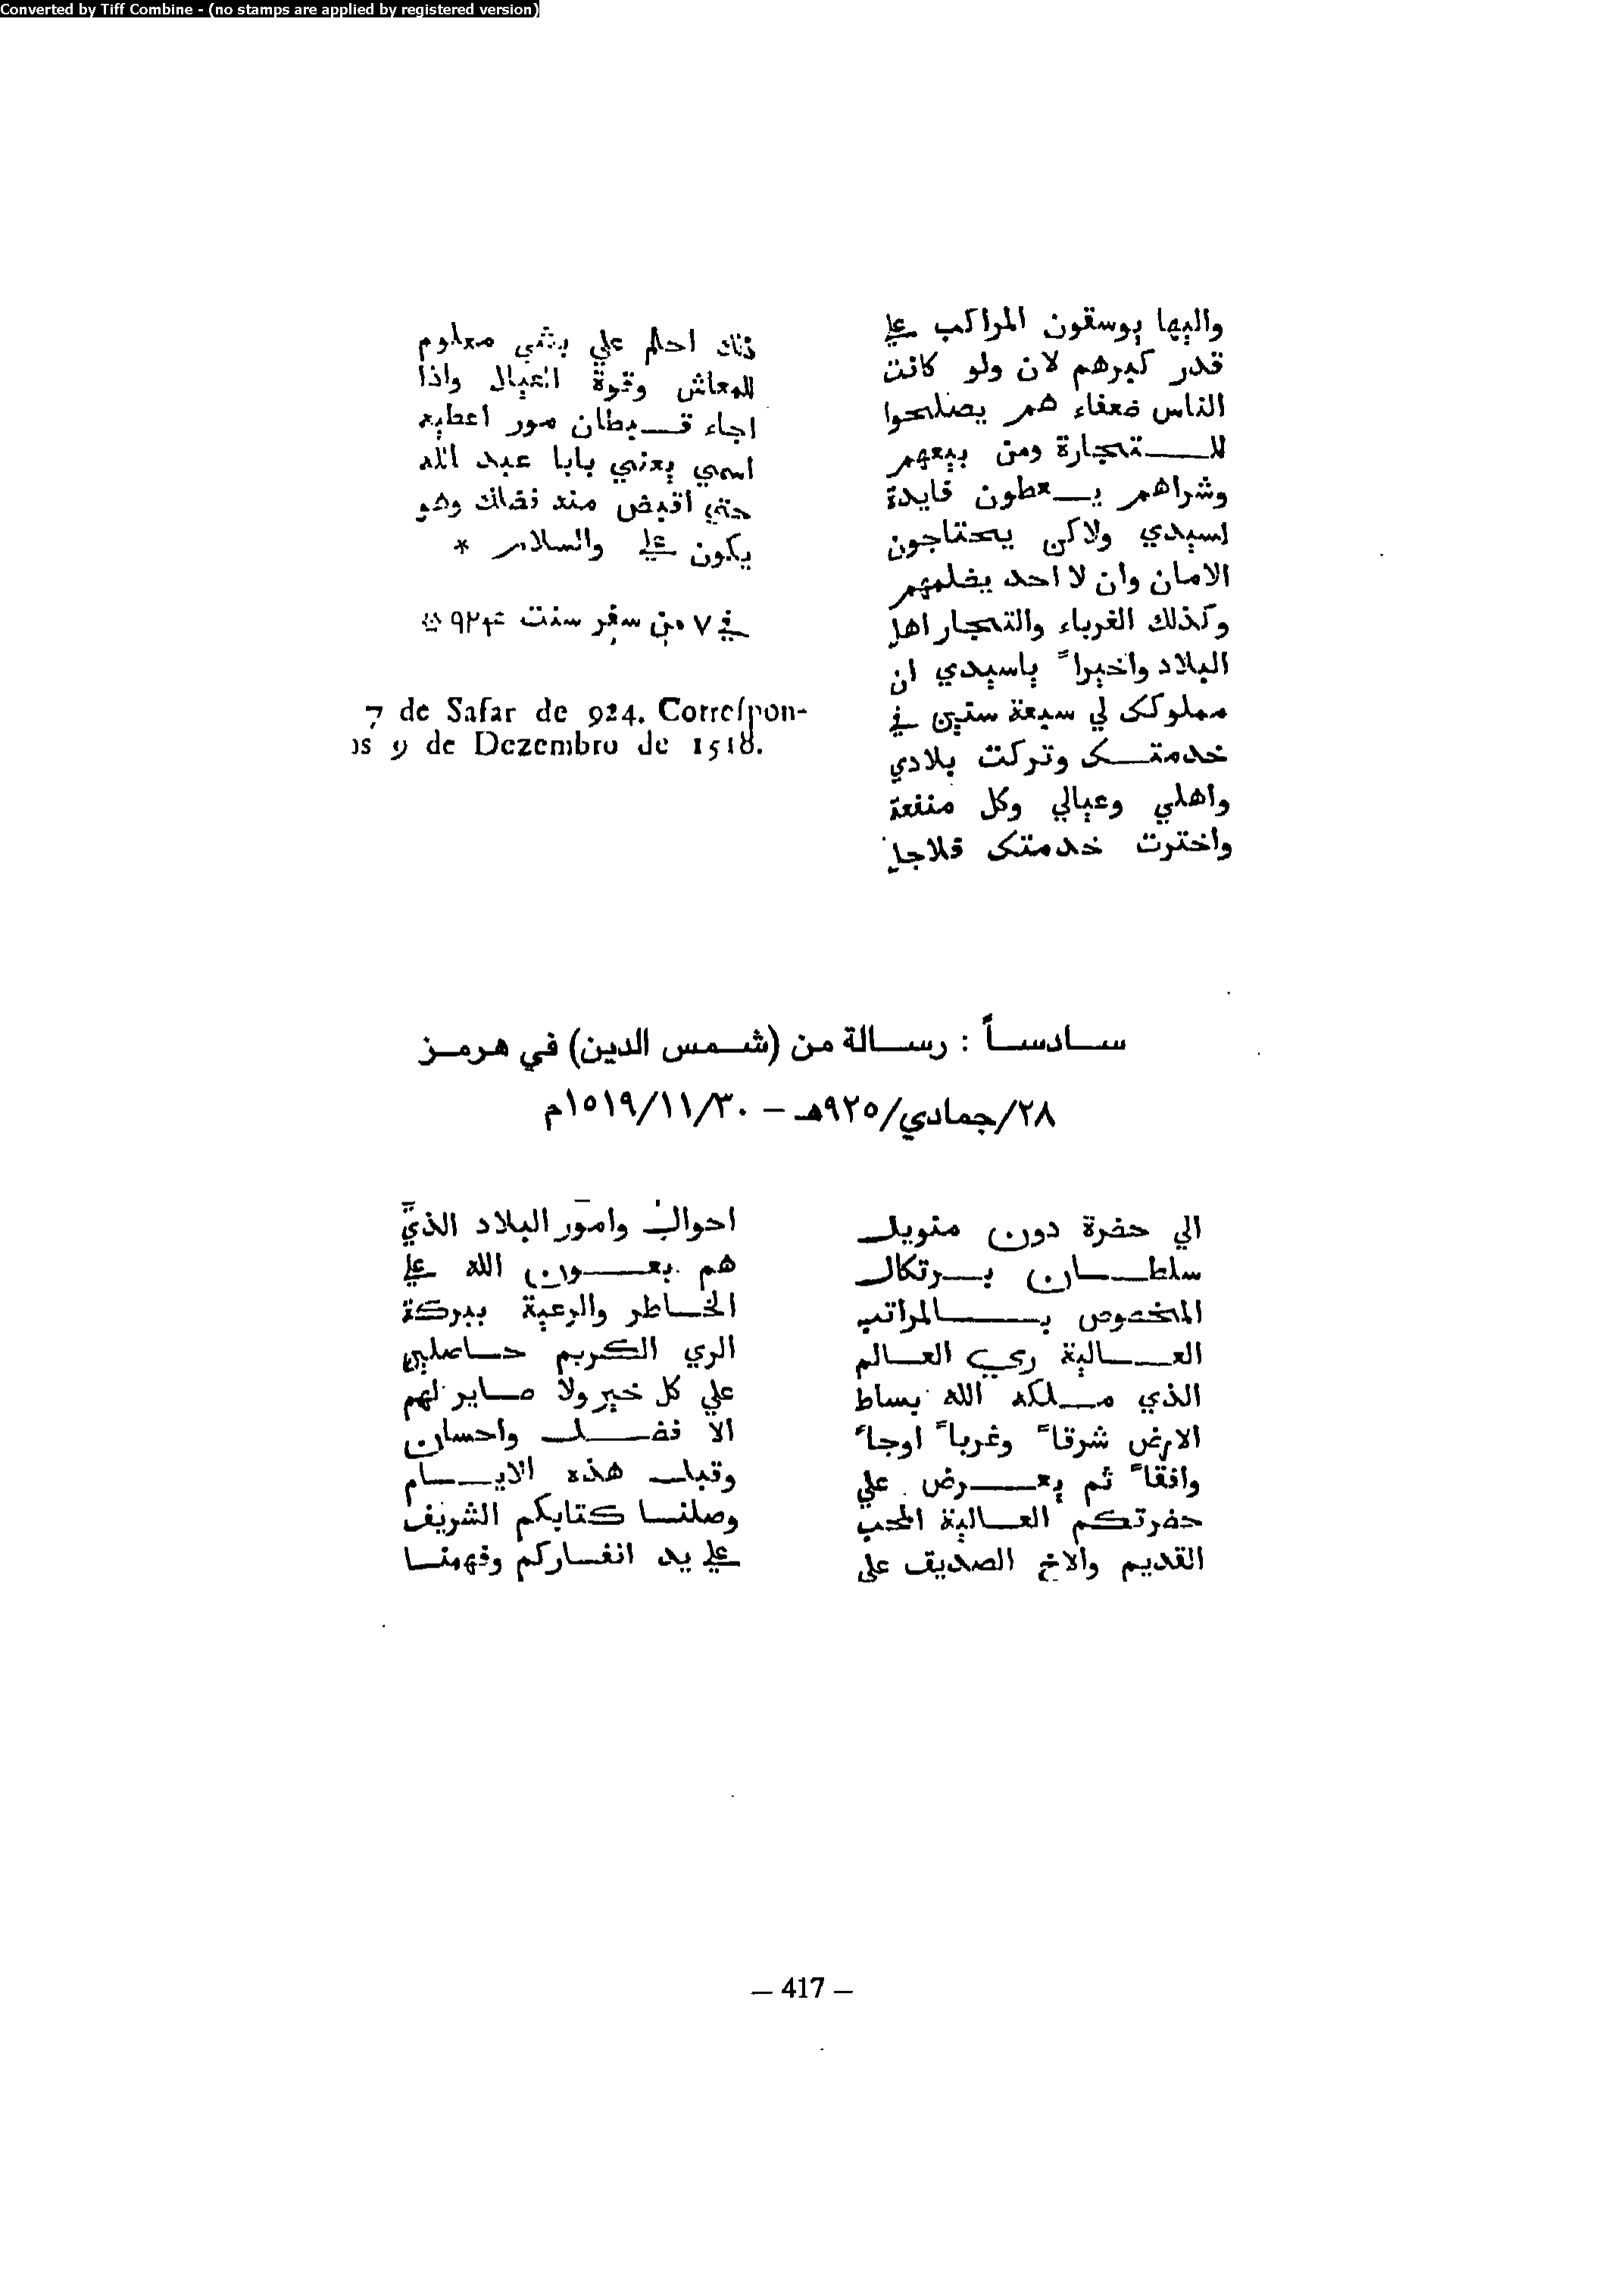 Converted by Tiff Combine - (no stamps are applied by registered version)
واليها يوسقون المراكب علي
قدر كبرهم لان ولو كانت
الناس ضعفاء هم يصلحوا
للتجارة ومن بيعهم
وشراهم يعطون فايدة
لسيدي ولاكن يحتاجون
الامان وان لا احد يضلمهم
وكذلك الغرباء والتجار اهل
البلاد واخيراً ياسيدي ان
مملوكك لي سبعة سنين في
خدمتك وتركت بلادي
واهلي وعيالي وكل منفعة
واخترت خدمتك فلاجل
ذلك احلم علي بشي معلوم
للمعاش وقوة العيال واذا
اجاء قبطان مور اعطيه
اسمي يعني بابا عبد الله
حتي اقبض منه فضلك وهو
يكون علي والسلام *
في ٧ من سفر سنت ٩٢٤
7 de Safar de 924. Correſpon-
os 9 de Dezembro de 1518.
سادساً : رسالة من (شمس الدين) في هرمز
٢٨/جمادي/٩٢٥هـ – ١٥١٩/١١/٣٠م
الي حضرة دون منويل
سلطان برتكال
المخصوص بالمراتب
العالية ري العالم
الذي ملكه الله بساط
الارض شرقاً وغرباً اوجاً
وافقاً ثم يعرض علي
حضرتكم العالية المحب
القديم والاخ الصديق علي
احوال وامور البلاد الذي
هم بعون الله علي
الخاطر والرعية ببركة
الري الكريم حاصلين
علي كل خير ولا صاير لهم
الا فضل واحسان
وقبل هذه الايام
وصلنا كتابكم الشريف
علي يد انفاركم وفهمنا
– 417 –